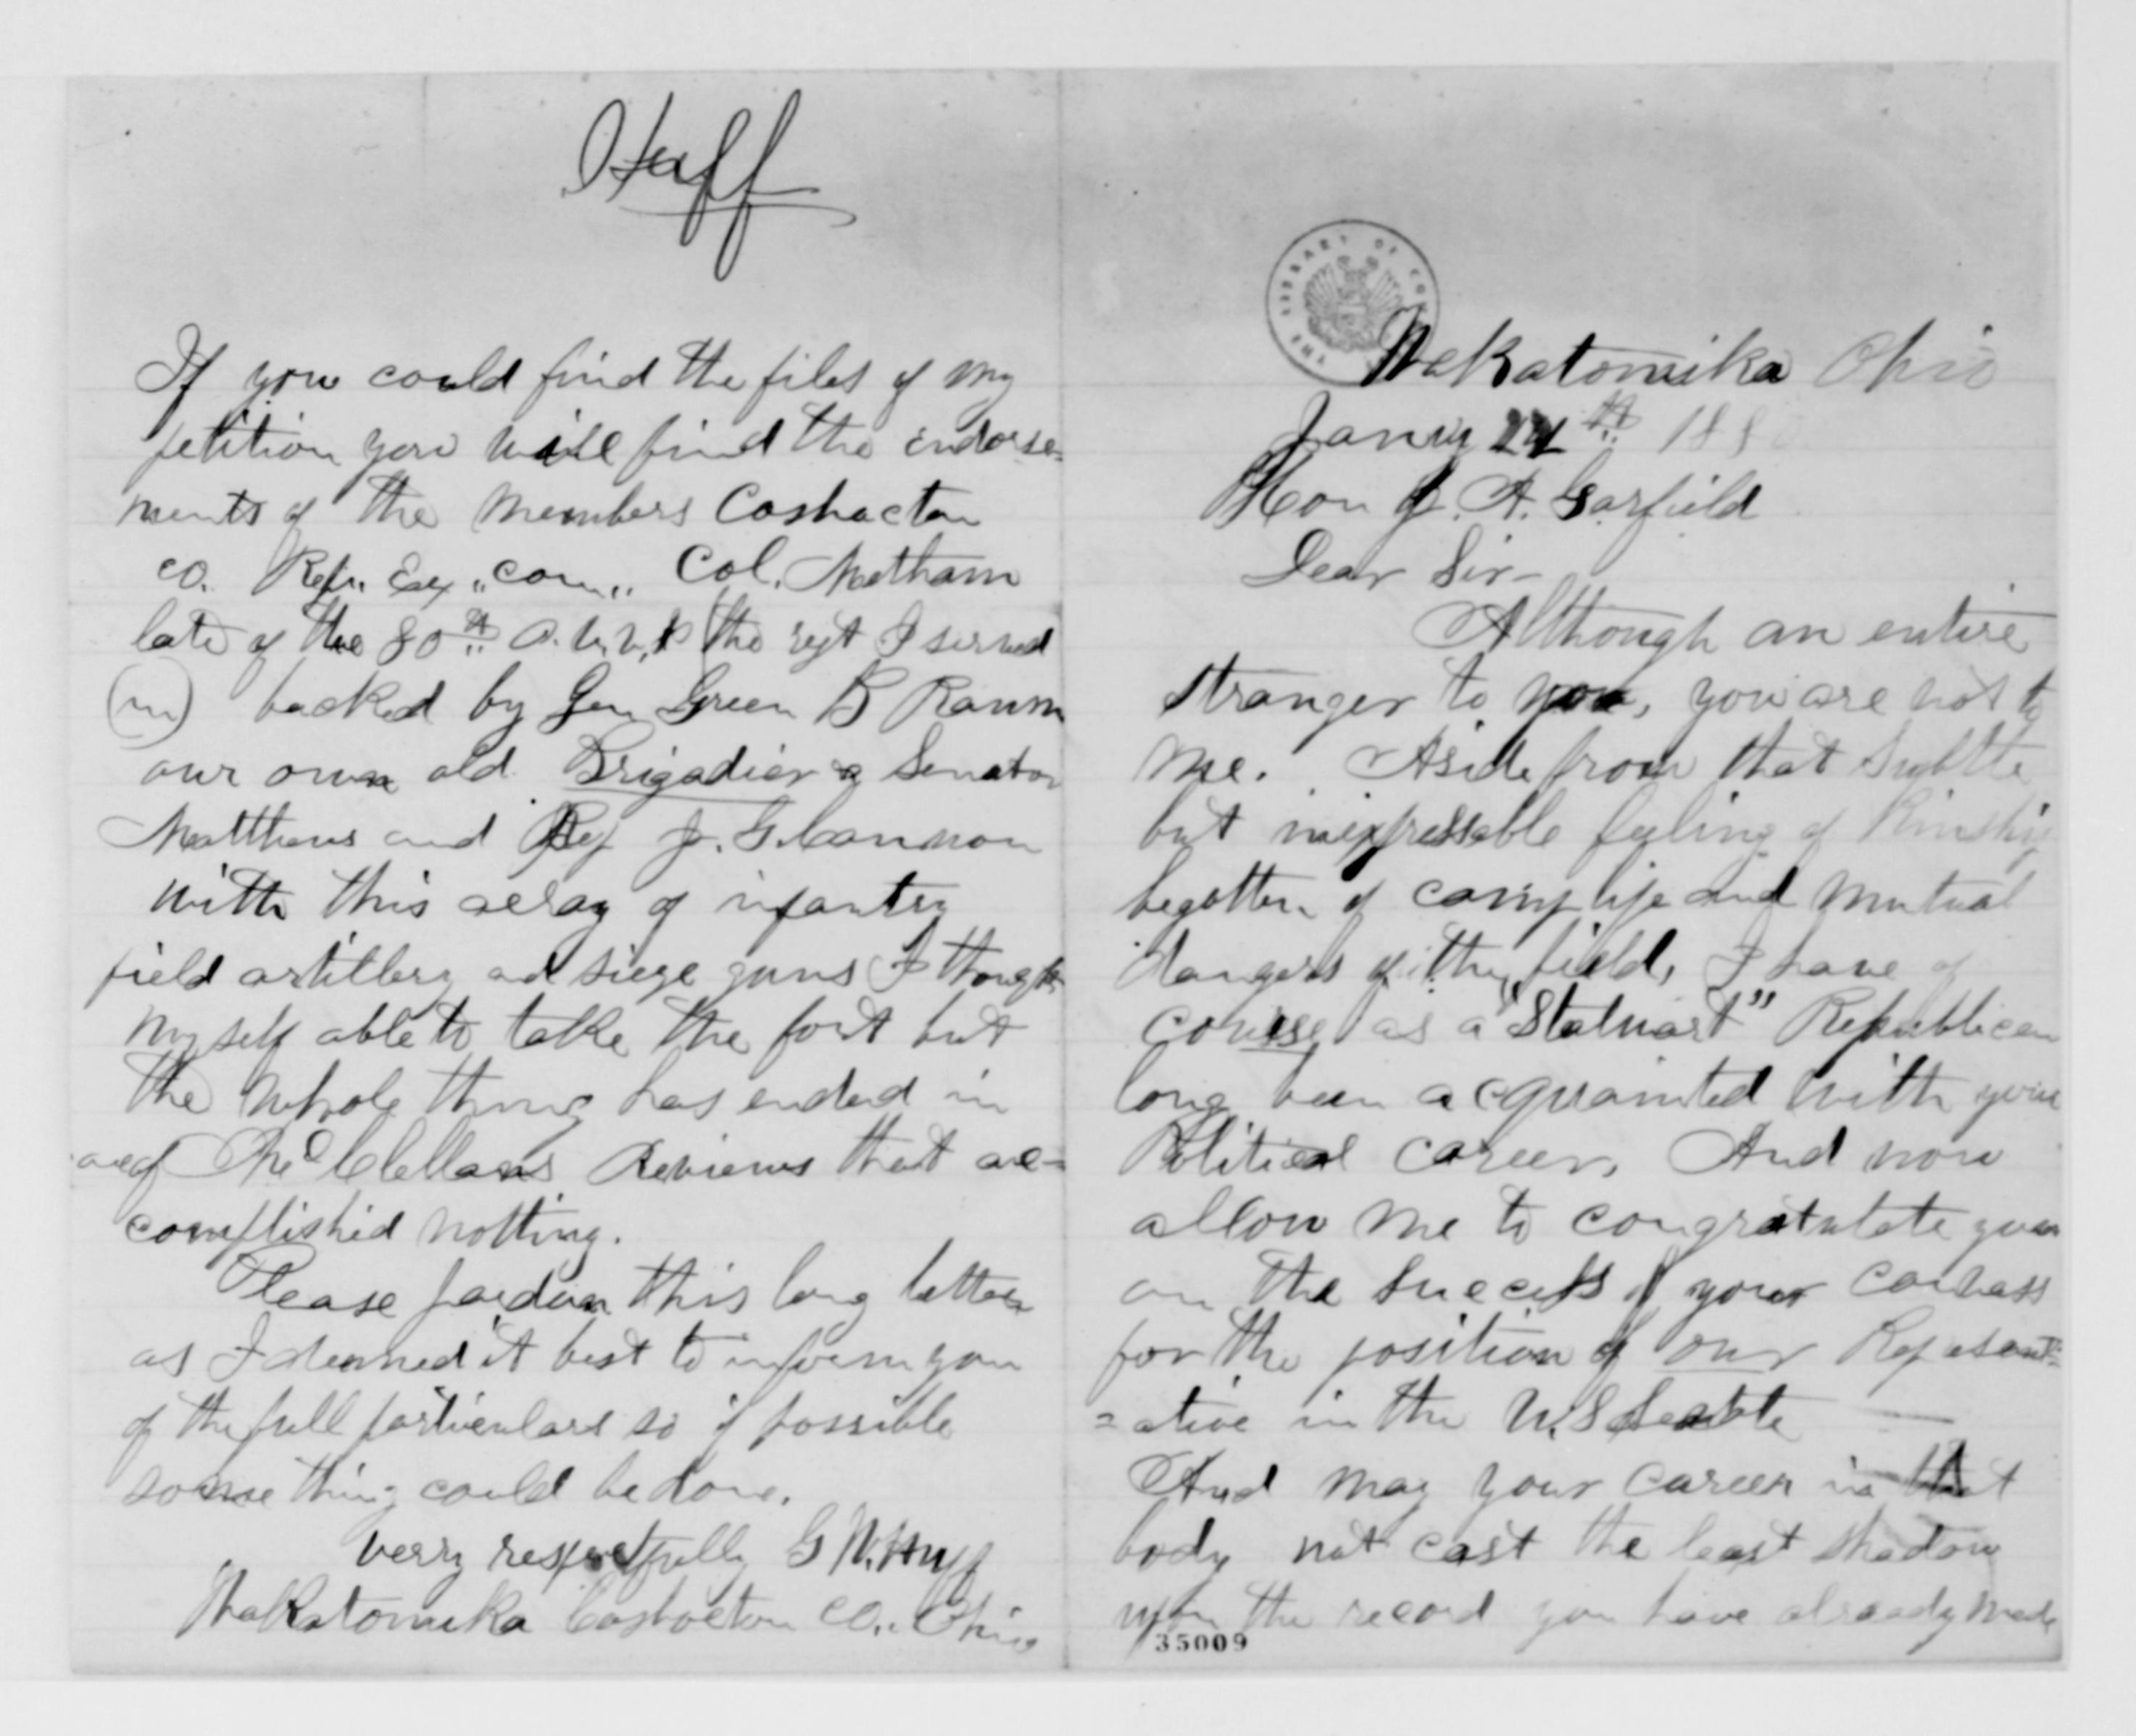 Huff
If you could find the files of my
petition you will find the endorse=
ments of the members Coshocton
co. Rep.. Ex,, com,, Col. Metham
late of the 80th O.V.V.I (the regt I served
(in) backed by Gen Green B Raum
our own old Brigadier & Senator
Matthews and Rep J. G. Cannon
with this array of infantry
field artillery and siege guns I thought
myself able to take the fort but
the whole thing has ended in
one of McClellans Reviews that ac=
complished notting.
Please pardon this long letter
as I deemed it best to inform you
of the full particulars so if possible
some thing could be done.
Verry respectfully G W. Huff
Wakatomika Coshocton Co.. Ohio
THE LIBRARY OF CO
Wakatomika Ohio
Jany 24th 188
Hon J. A. Garfield
Dear Sir-
Although an entire
stranger to you, you are not to
me. Aside from that subtle
but inexpressable feeling of Kinship
begotten of camp life and mutual
dangers of the field, I have of
course as a "Stalwart" Republican
long been acquainted with your
Political career, And now
allow me to congratulate you
on the success of your canvass
for the position of our Represent=
=ative in the U.S Senate
And may your career in that
body not cast the least shadow
upon the record you have already made
35009